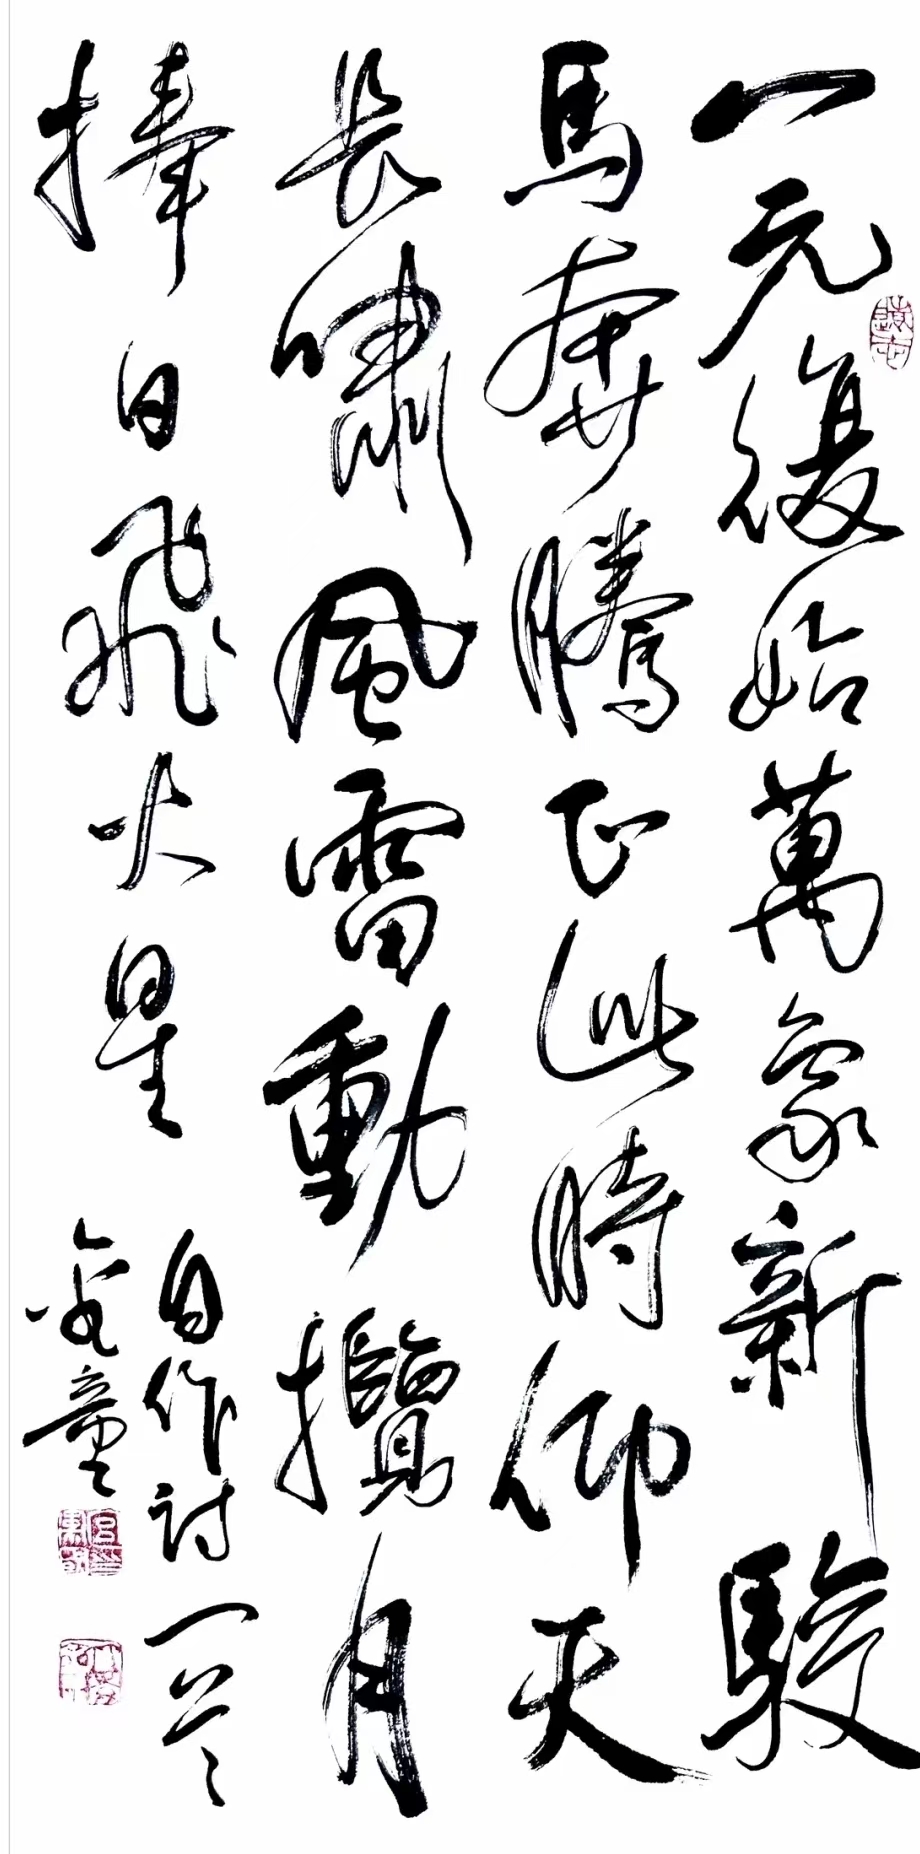 一元復始萬象新駿
馬奔騰正此時仰天
長嘯風雷動攬月
捧日飛火星
自作詩一首
童